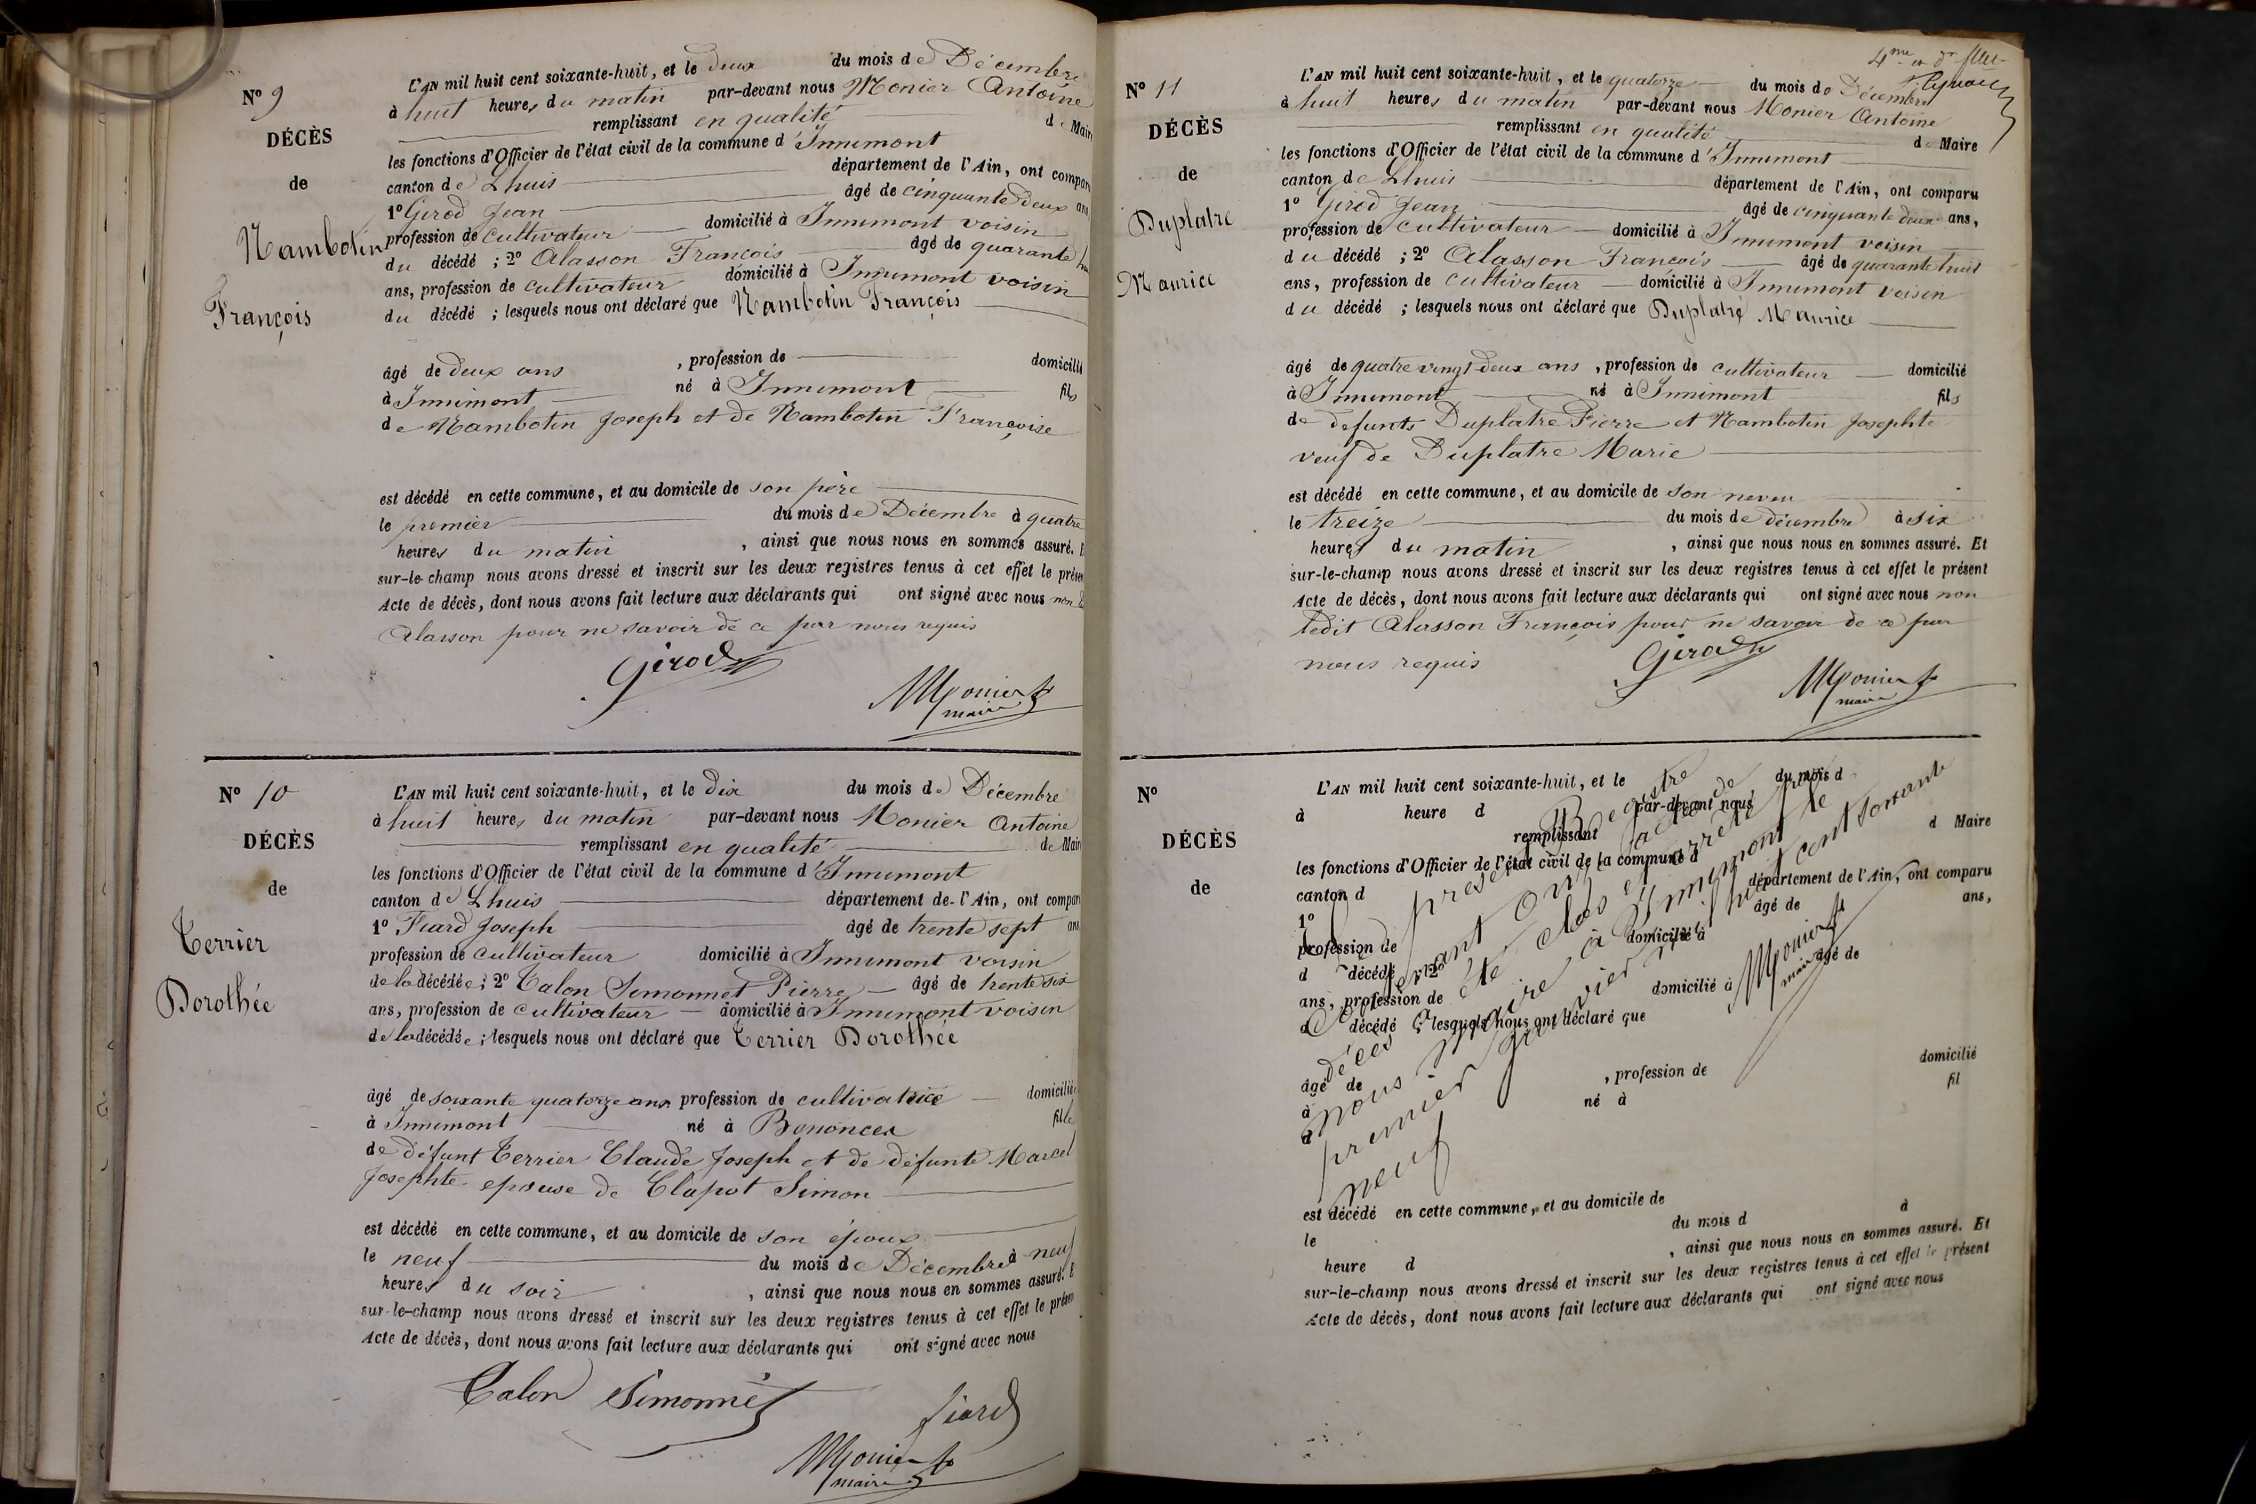 N° 9
DÉCÈS
de
Nambotin
François
L'AN mil huit cent soixante-huit, et le deux du mois de Décembre
à huit heures du matin par-devant nous Monier Antoine
remplissant en qualité de Maire
les fonctions d'Officier de l'état civil de la commune d'Innimont
canton de Lhuis département de l'Ain, ont compar
1° Girod Jean âgé de cinquante deux ans
profession de cultivateur domicilié à Innimont voisin
du décédé ; 2° Alasson François âgé de quarante huit
ans, profession de cultivateur domicilié à Innimont voisin
du décédé ; lesquels nous ont déclaré que Nambotin François
âgé de deux ans , profession de domicilié
à Innimont né à Innimont fils
de Nambotin Joseph et de Nambotin Françoise
est décédé en cette commune, et au domicile de son père
le premier du mois de Décembre à quatre
heures du matin , ainsi que nous nous en sommes assuré. E
sur-le-champ nous avons dressé et inscrit sur les deux registres tenus à cet effet le présen
Acte de décès, dont nous avons fait lecture aux déclarants qui ont signé avec nous non
Alasson pour ne savoir de ce par nous requis
Girod
Monier
maire
N° 10
DÉCÈS
de
Terrier
Dorothée
L'AN mil huit cent soixante-huit, et le dix du mois de Décembre
à huit heures du matin par-devant nous Monier Antoine
remplissant en qualité de Mair
les fonctions d'Officier de l'état civil de la commune d'Innimont
canton de Lhuis département de l'Ain, ont compar
1° Fiard Joseph âgé de trente sept ans
profession de cultivateur domicilié à Innimont voisin
de la décédée ; 2° Talon Simonnet Pierre âgé de trente six
ans, profession de cultivateur domicilié à Innimont voisin
de la décédée ; lesquels nous ont déclaré que Terrier Dorothée
âgé de soixante quatorze ans profession de cultivatrice domiciliée
à Innimont né à Bénonces fille
de défunt Terrier Claude Joseph et de défunte Marcel
Josephte épouse de Clapot Simon
est décédé en cette commune, et au domicile de son époux
le neuf du mois de Décembre à neuf
heures du soir , ainsi que nous nous en sommes assuré. E
sur-le-champ nous avons dressé et inscrit sur les deux registres tenus à cet effet le présen
Acte de décès, dont nous avons fait lecture aux déclarants qui ont signé avec nous
Talon Simonnet
fiard
Monier
maire
N° 11
DÉCÈS
de
Duplatre
Maurice
L'AN mil huit cent soixante-huit, et le quatorze du mois de Décembre
à huit heures du matin par-devant nous Monier Antoine
remplissant en qualité de Maire
les fonctions d'Officier de l'état civil de la commune d'Innimont
canton de Lhuis département de l'Ain, ont comparu
1° Girod Jean âgé de cinquante deux ans,
profession de cultivateur domicilié à Innimont voisin
du décédé ; 2° Alasson François âgé de quarante huit
ans, profession de cultivateur domicilié à Innimont voisin
du décédé ; lesquels nous ont déclaré que Duplatre Maurice
âgé de quatre vingt deux ans , profession de cultivateur domicilié
à Innimont né à Innimont fils
de defunts Duplatre Pierre et Nambotin Josephte
veuf de Duplatre Marie
est décédé en cette commune, et au domicile de son neveu
le treize du mois de décembre à six
heures du matin , ainsi que nous nous en sommes assuré. Et
sur-le-champ nous avons dressé et inscrit sur les deux registres tenus à cet effet le présent
Acte de décès, dont nous avons fait lecture aux déclarants qui ont signé avec nous non
ledit Alasson François pour ne savoir de ce par
nous requis
Girod
Monier
maire
N°
DÉCÈS
de
L'AN mil huit cent soixante-huit, et le du mois d
à heure d par-devant nous
remplissant d Maire
les fonctions d'Officier de l'état civil de la commune d
canton d département de l'Ain, ont comparu
1° âgé de ans,
profession de domicilié à
d décédé ; 2° âgé de
ans, profession de domicilié à
d décédé ; lesquels nous ont déclaré que
âgé de , profession de domicilié
à né à fil
d
est décédé en cette commune, et au domicile de
le du mois d à
heure d , ainsi que nous nous en sommes assuré. Et
sur-le-champ nous avons dressé et inscrit sur les deux registres tenus à cet effet le présent
Acte de décès, dont nous avons fait lecture aux déclarants qui ont signé avec nous
présent Registre
contenant onze actes de
décès été clos et arrêté par
nous maire à Innimont le
premier janvier mil huit cent soixante
neuf
Monier
maire